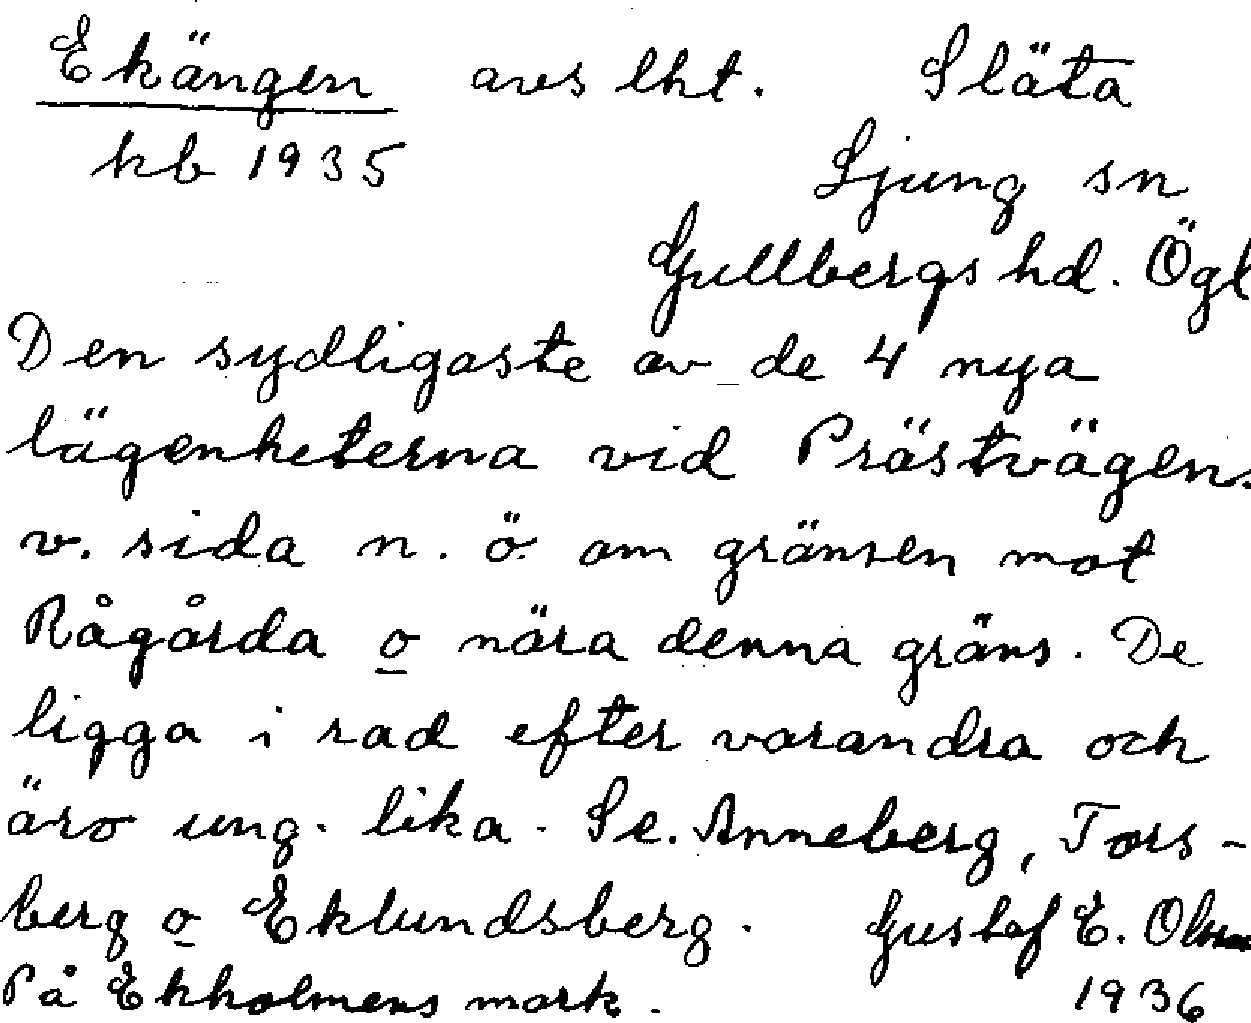 Ekängen avs lht. Släta
kb 1935 Ljung sn
Gullbergs hd. Ögl
Den sydligaste av de 4 nya
lägenheterna vid Prästvägens
v. sida n. ö. om gränsen mot
Rågårda o nära denna gräns. De
ligga i rad efter varandra och
äro ung. lika. Se. Anneberg, Tors-
berg o Eklundsberg. Gustaf E. Olsson
På Ekholmens mark. 1936